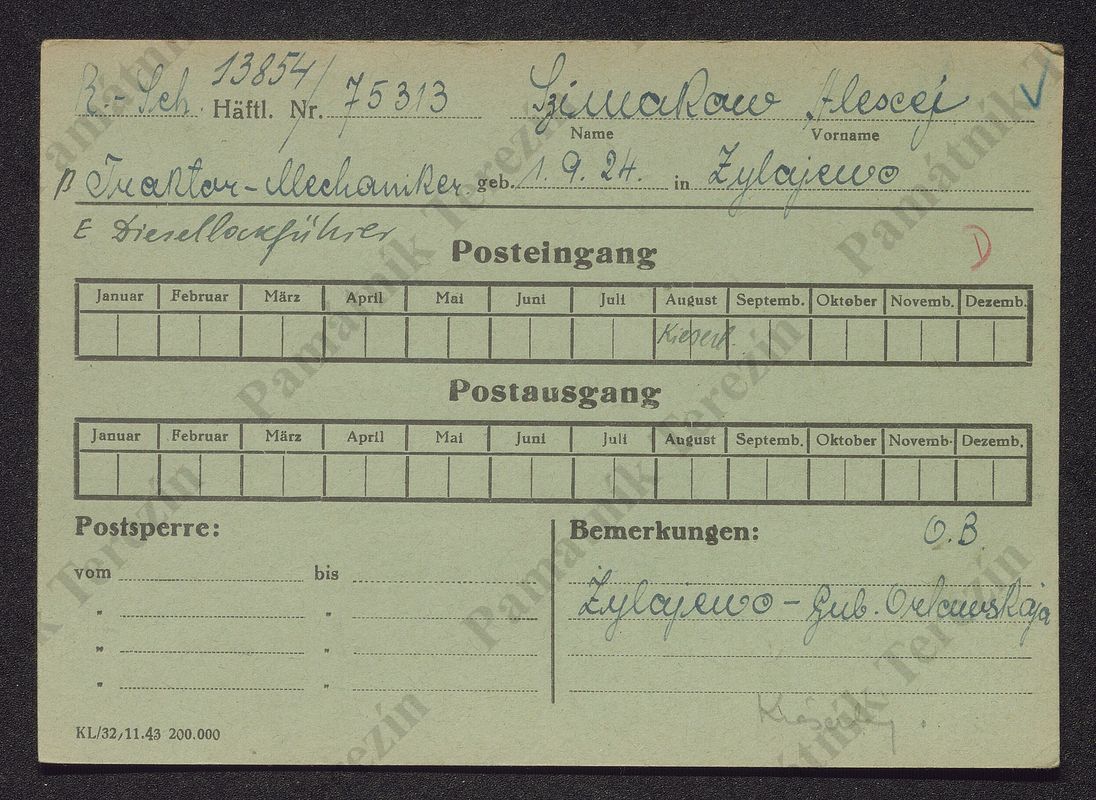 R.-Sch. 13854/
Häftl. Nr. 75313 Szimakow Alexej
Name Vorname
β Traktor-Mechaniker geb. 1.9.24. in Zylajewo
E Diesellokführer
Posteingang
D
Januar Februar März April Mai Juni Juli August Septemb. Oktober Novemb. Dezemb.
Postausgang
Januar Februar März April Mai Juni Juli August Septemb. Oktober Novemb. Dezemb.
Postsperre: Bemerkungen: O.B.
vom bis
" "
Zylajewo - Gub. Orlowskaja
" "
" "
KL/32, 11.43 200.000
Památník Terezín